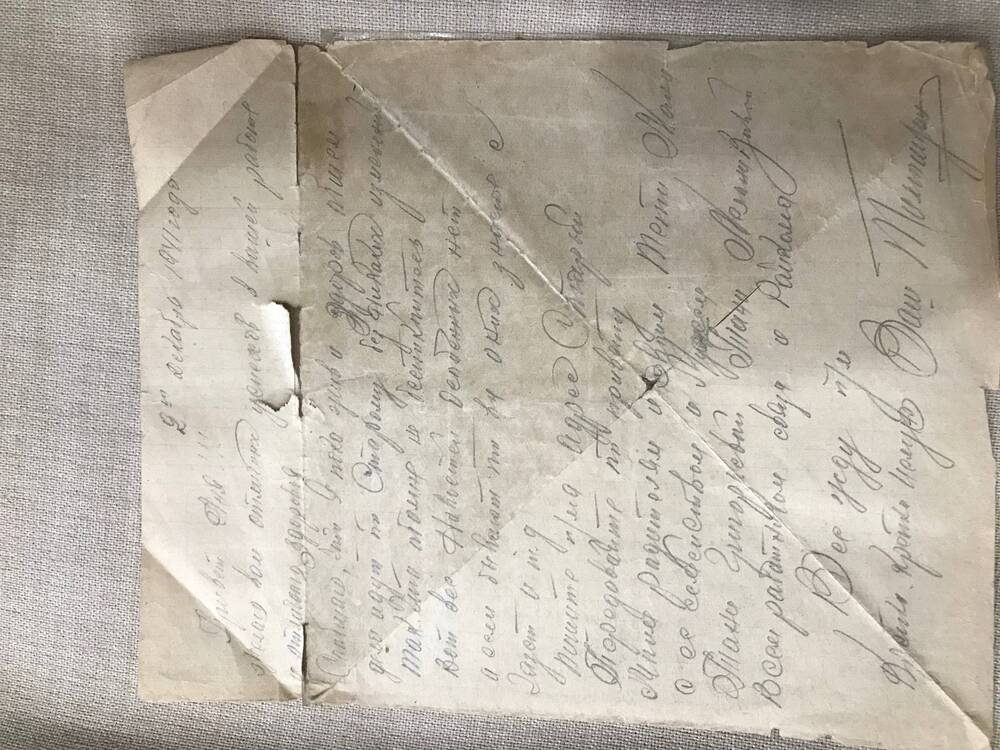 2го декабря 1941 года
Привет Аня!!!
желаю вам отличных успехов в вашей работе
и отличного здоровья
Сообщаю, что я пока жив и здоров общем
дела идут по Старому без никаких изменений
так что обомне не беспокойтесь
Вот все Новостей Особенных нет
а если бывают то вы о них знаете с
Газет и т.д
пишите п/мо адрес Старый
Передовайте по привету
Моим радителям и Тети
с ее семейством и Мужем
Тани Григорьевой Тани
Всем работником связи и Райкома
Все жду п/м
Крепко. Крепко Целую Ваш